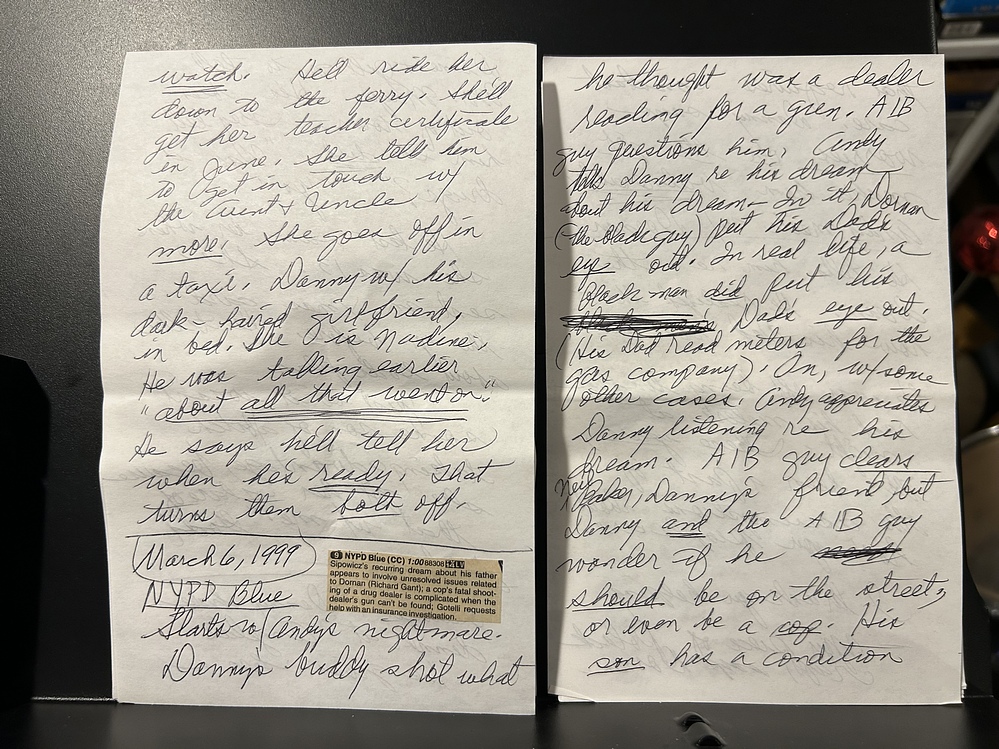 watch. Hell ride her
down to the ferry. She'll
get her teacher certificate
in June. She tells him
to get in touch w/
the Aunt & Uncle
more. She goes off in
a taxi. Danny w/ his
dark-haired girlfriend,
in bed. She is Nadine.
He was talking earlier
"about all that went on."
He says he'll tell her
when he's ready. That
turns them both off.
March 6, 1999
NYPD Blue
NYPD Blue (CC) 1:00 88308
Sipowicz's recurring dream about his father
appears to involve unresolved issues related
to Dornan (Richard Gant); a cop's fatal shoot-
ing of a drug dealer is complicated when the
dealer's gun can't be found; Gotelli requests
help with an insurance investigation.
Starts w/ Andy's nightmare.
Danny's buddy shot what
he thought was a dealer
reading for a gun. AIB
guy questions him. Andy
tells Danny re his dream
about his dream - In it, Dornan
(the black guy) put his Dad's
eye out. In real life, a
black man did put his
Dad's eye out.
(His Dad read meters for the
gas company). On, w/ some
other cases. Andy appreciates
Danny listening re his
dream. AIB guy clears
Baker, Danny's friend, but
Danny and the AIB guy
wonder if he
should be on the street,
or even be a cop. His
son has a condition